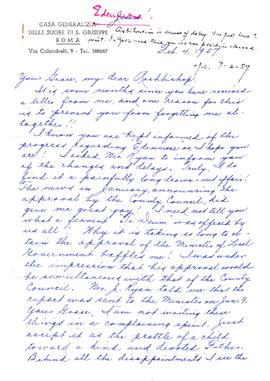 Edengrove!
CASA GENERALIZIA
DELLE SUORE DI S. GIUSEPPE
ROMA
Via Colandrelli, 9 - Tel.
is cause of delay. I've just
Feb. 4, 1959
9-2-59
Your Grace, my dear Archbishop,
It is some months since you have received
a letter from me, and one reason for this
is to prevent you from forgetting me al-
together!!
I know you are kept informed of the
progress regarding Edenmore as I hope you
are. I asked Mr. Ryan to inform you
of the changes and delays. Truly, I do
find it a painfully long drawn-out affair!
The news in January, announcing the
approval by the County Council, did
give me great joy. I need not tell you
what a fervent "Te Deum" was offered by
us all! Why it is taking so long to ob-
tain the approval of the Minister of Local
Government baffles me! I was under
the impression that his approval would
be simultaneous with that of the County
Council. Mr. J. Ryan told me that the
report was sent to the Minister on
Yours Grace, I am not writing these
things in a complaining spirit. Just
accept it as the prattle of a child
toward a kind and devoted Father.
Behind all the disappointments I see the